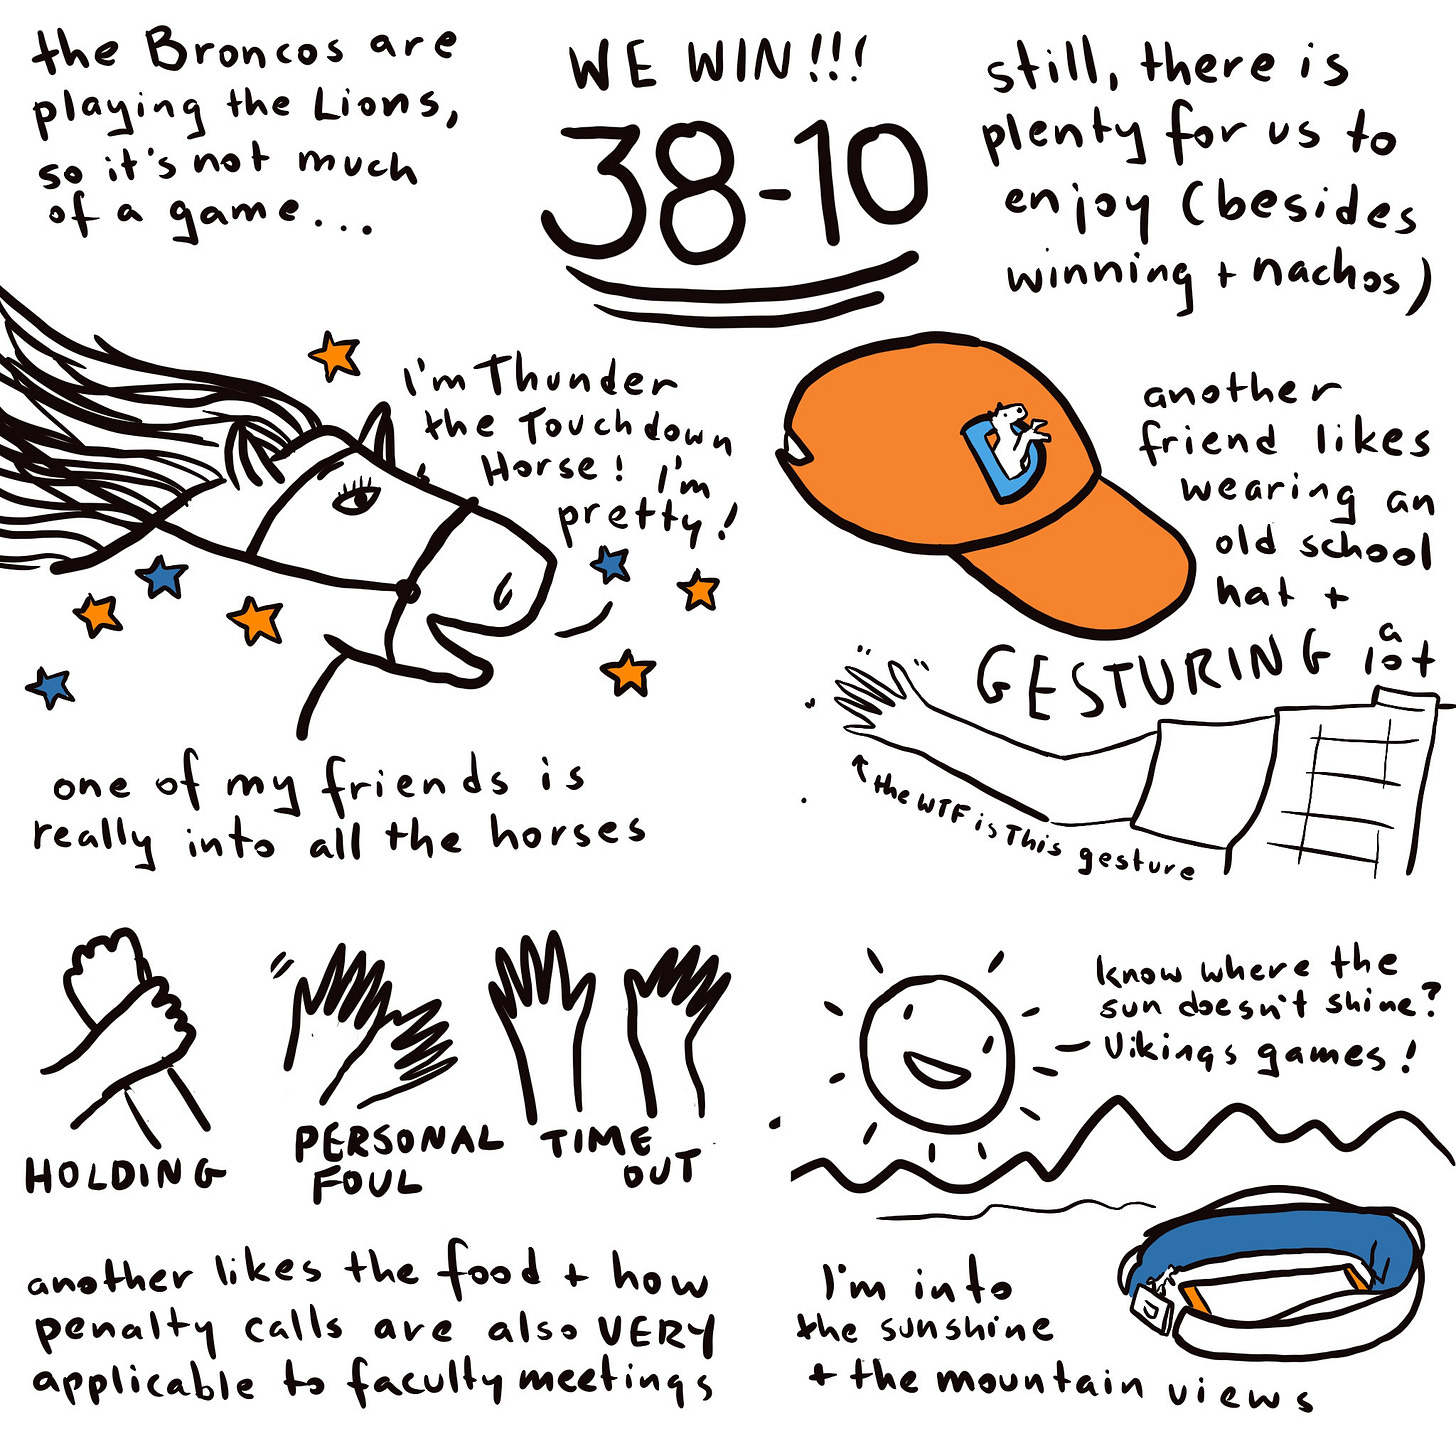 the Broncos are
playing the Lions,
so it's not much
of a game...
WE WIN!!!
38-10
still, there is
plenty for us to
enjoy (besides
winning + nachos)
I'm Thunder
the Touchdown
Horse! I'm
pretty!
one of my friends is
really into all the horses
D
another
friend likes
wearing an
old school
hat +
GESTURING a lot
the WTF is This gesture
HOLDING
PERSONAL
FOUL
TIME
OUT
another likes the food + how
penalty calls are also VERY
applicable to faculty meetings
know where the
sun doesn't shine?
Vikings games!
I'm into
the sunshine
+ the mountain views